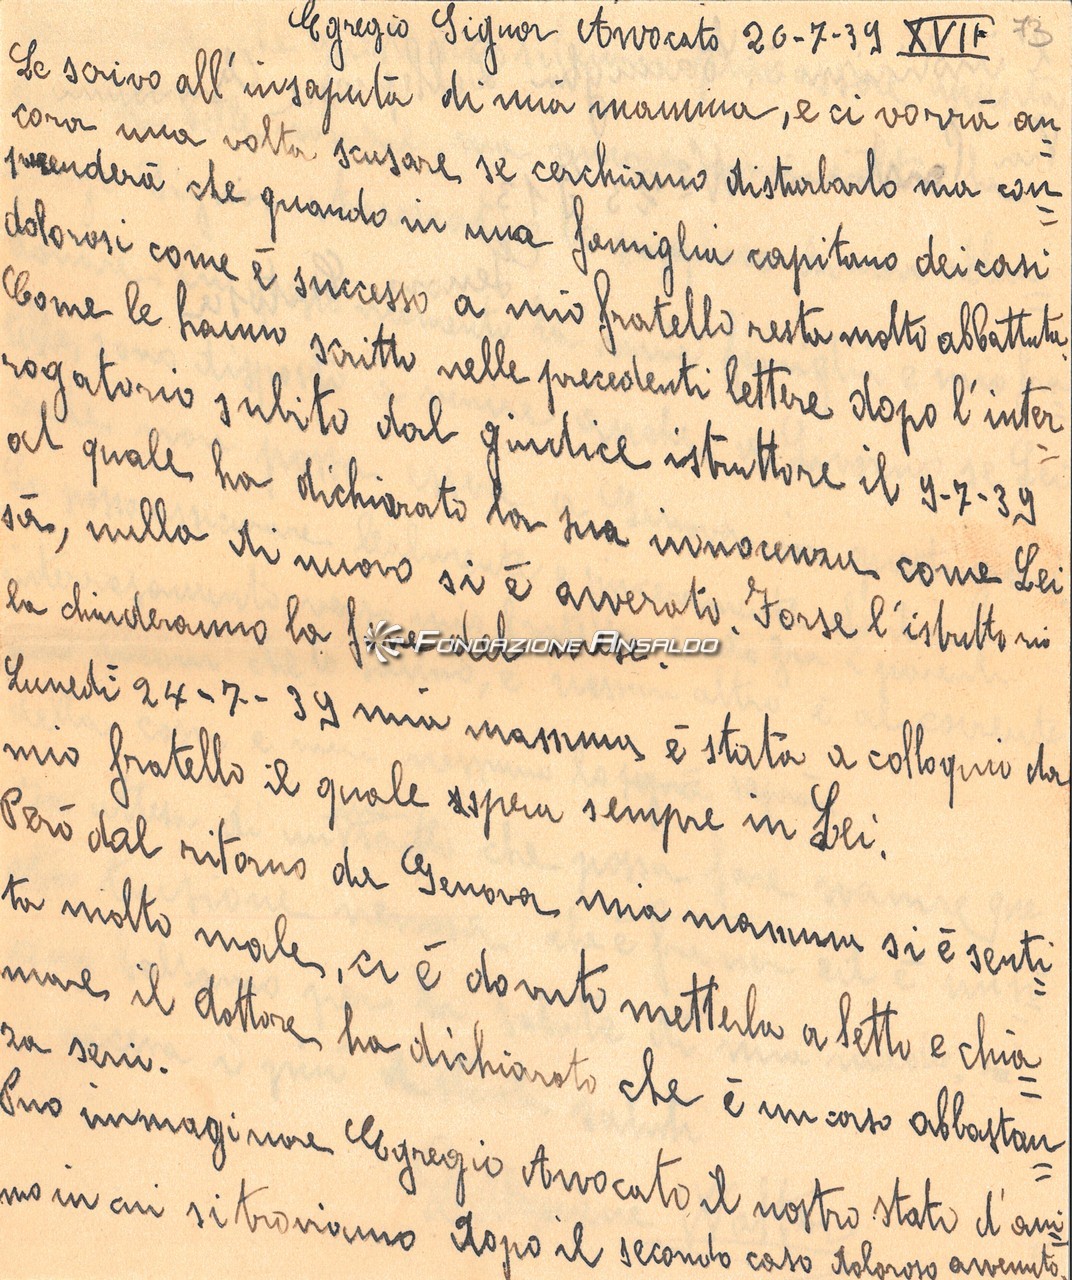 Egregio Signor Avvocato 26-7-39 XVII 73
Le scrivo all'insaputa di mia mamma, e ci vorrà an=
cora una volta scusare se cerchiamo disturbarlo ma con=
prenderà che quando in una famiglia capitano dei casi
dolorosi come è successo a mio fratello resta molto abbattuta.
Come le hanno scritto nelle precedenti lettere dopo l'inter=
rogatorio subito dal giudice istruttore il 9-7-39
al quale ha dichiarato la sua innocenza come Lei
sà, nulla di nuovo si è avverato. Forse l'istruttoria
la chiuderanno la fine del mese.
FONDAZIONE ANSALDO
Lunedì 24-7-39 mia mamma è stata a colloquio da
mio fratello il quale spera sempre in Lei.
Però dal ritorno da Genova mia mamma si è senti=
ta molto male, ci è dovuto metterla a letto e chia=
mare il dottore ha dichiarato che è un caso abbastan=
za serio.
Può immaginare Egregio Avvocato il nostro stato d'ani=
mo in cui si troviamo dopo il secondo caso doloroso avvenuto.